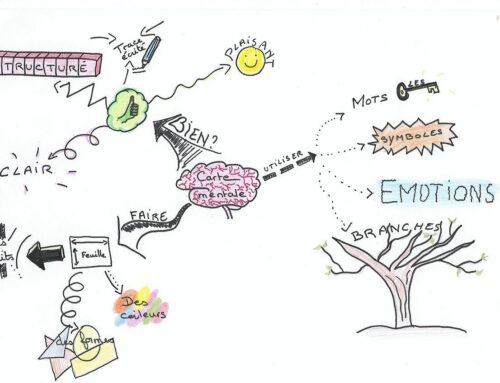 Trace
écrite
PLAISANT
TRUCTURÉ
CLAIR
BIEN?
Carte
mentale
UTILISER
MOTS
LES
SYMBOLES
EMOTIONS
BRANCHES
FAIRE
Feuille
Des
Couleurs
des formes